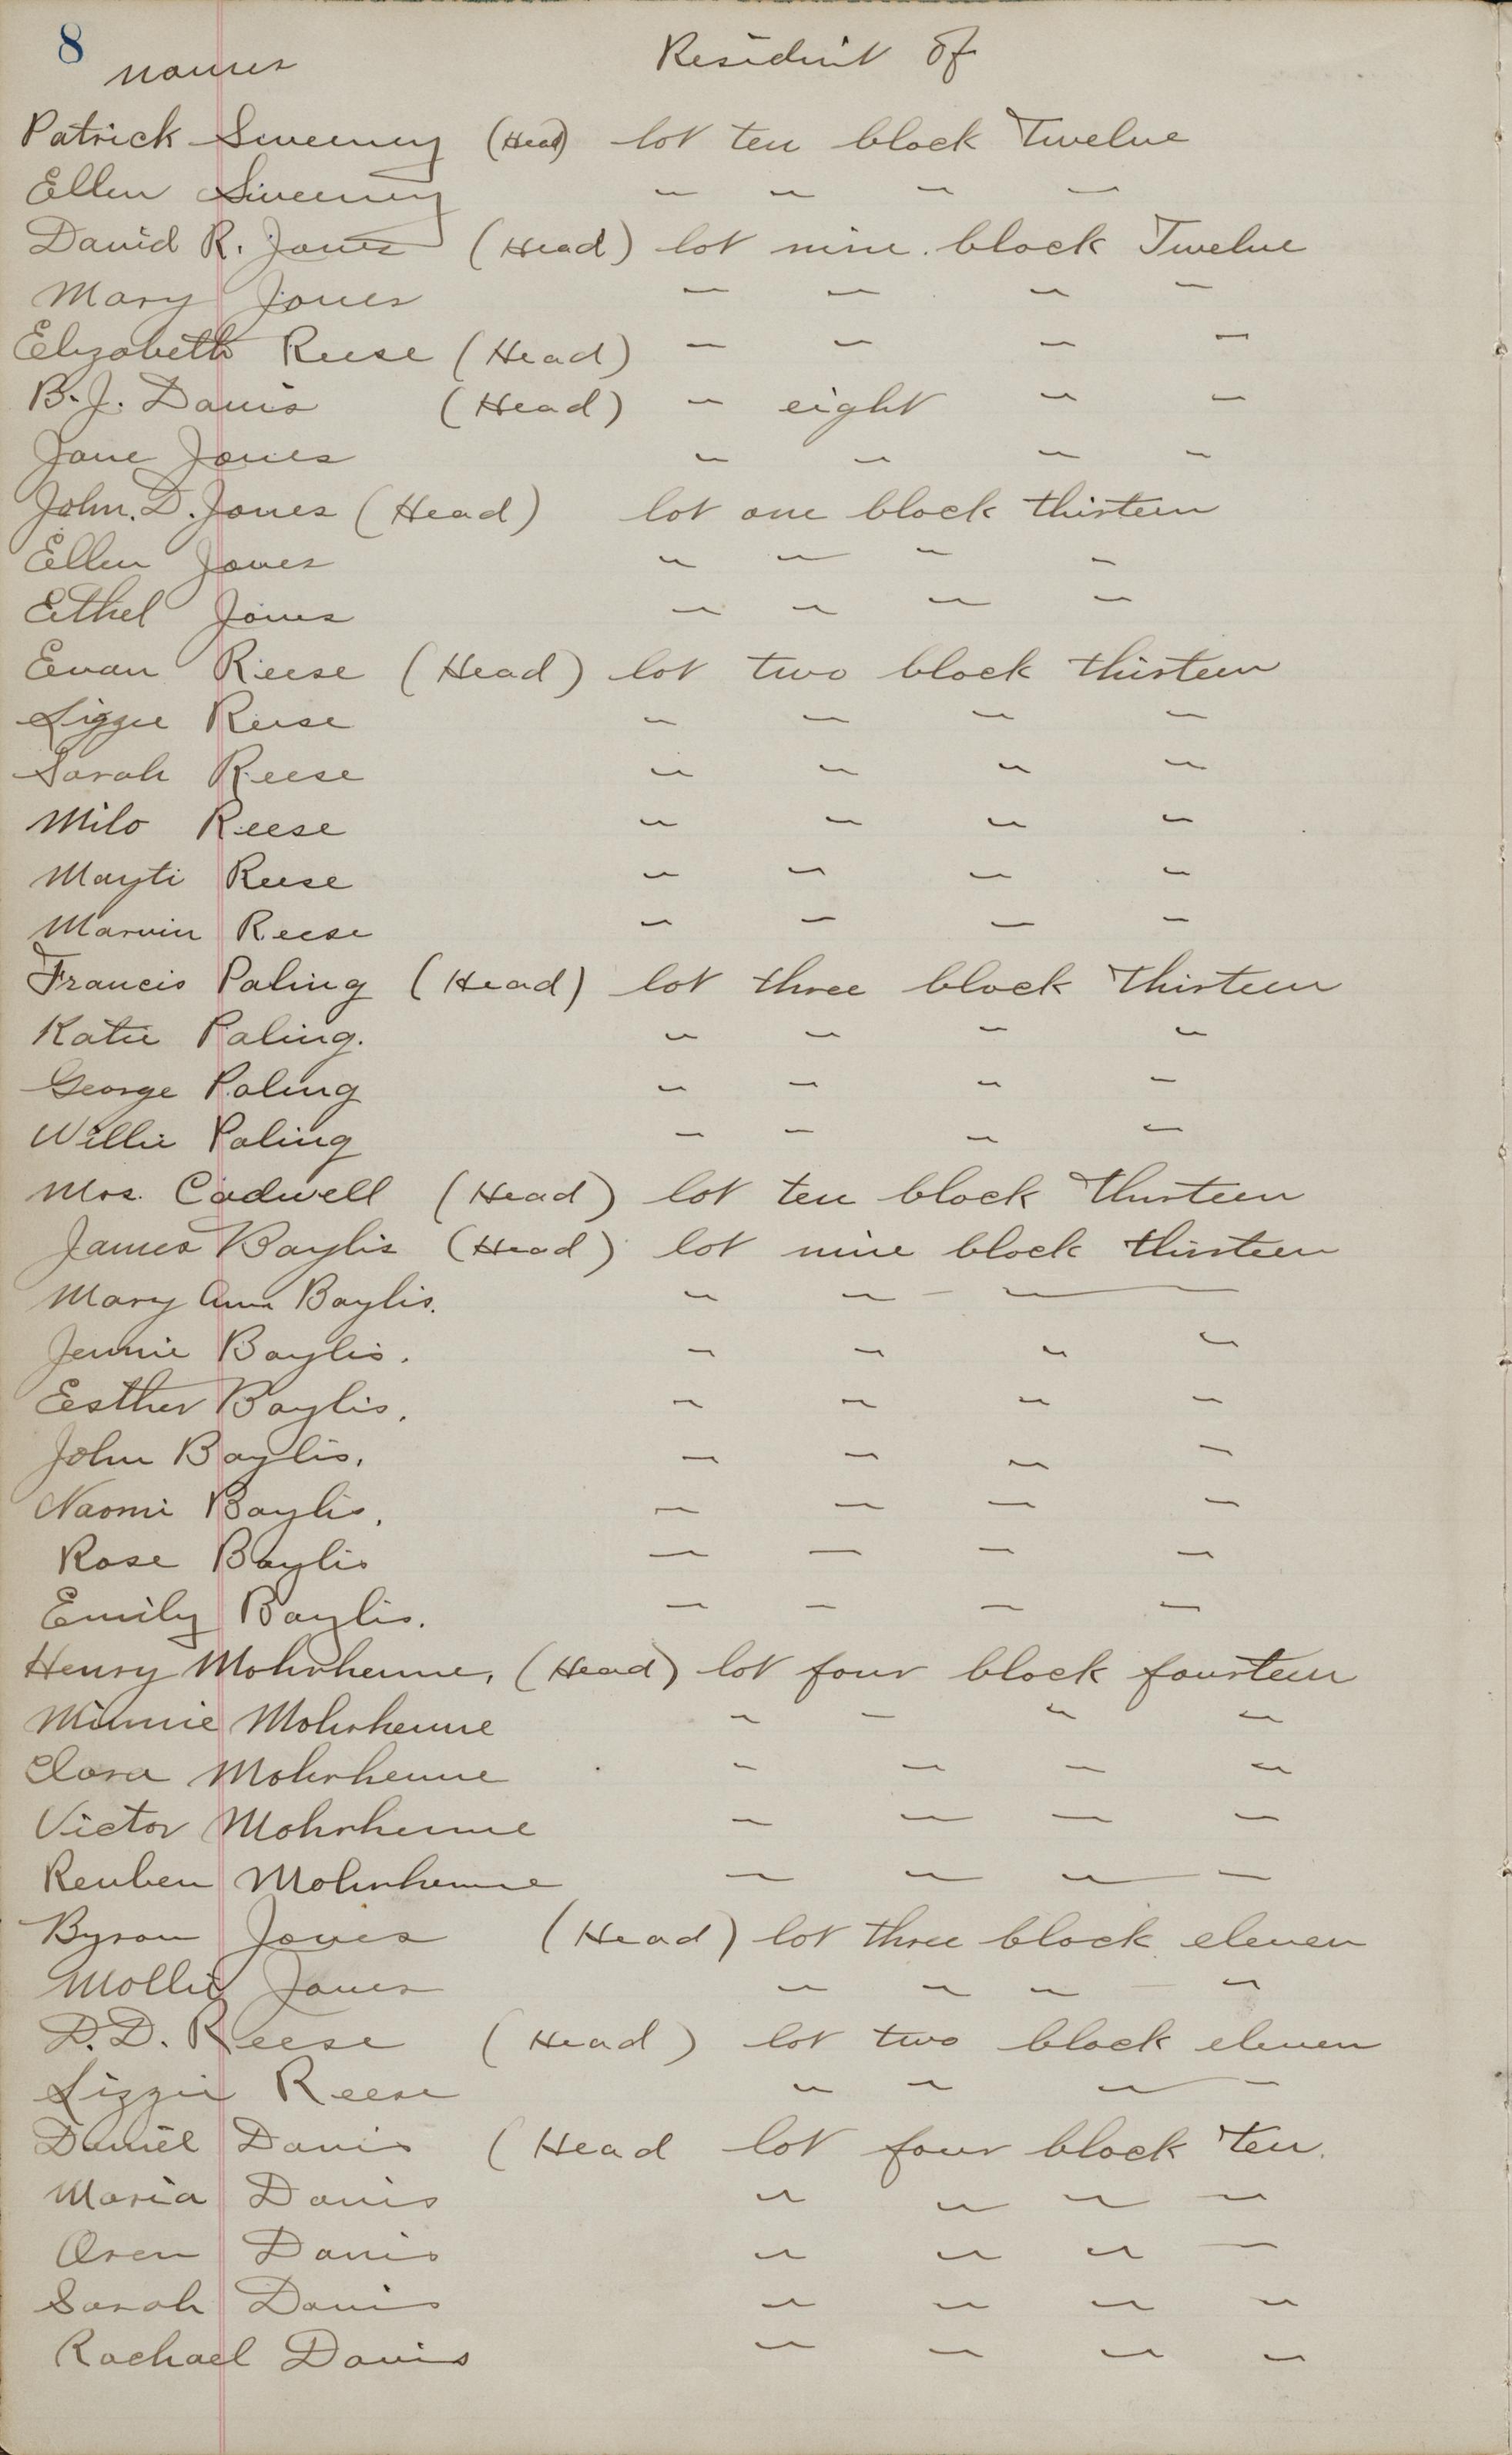 8
names Resident of
Patrick Sweeney (Head) lot ten block Twelve
Ellen Sweeney " " " "
David R. Jones (Head) lot nine. block Twelve
Mary Jones " " " "
Elizabeth Reese (Head) " " " "
B. J. Davis (Head) " eight " "
Jane Jones " " " "
John. D. Jones (Head) lot one block thirteen
Ellen Jones " " " "
Ethel Jones " " " "
Evan Reese (Head) lot two block thirteen
Lizzie Reese " " " "
Sarah Reese " " " "
Milo Reese " " " "
Mayti Reese " " " "
Marvin Reese " " " "
Francis Paling (Head) lot three block Thirteen
Katie Paling. " " " "
George Paling " " " "
Willie Paling " " " "
Mrs. Cadwell (Head) lot ten block Thirteen
James Baylis (Head) lot nine block thirteen
Mary Ann Baylis. " " "
Jennie Baylis. " " " "
Eesther Baylis. " " " "
John Baylis. " " " "
Naomi Baylis. " " " "
Rose Baylis " " " "
Emily Baylis. " " " "
Henry Mohrhenne, (Head) lot four block fourteen
Minnie Mohrhenne " " " "
Clara Mohrhenne " " " "
Victor Mohrhenne " " " "
Reuben Mohrhenne " " " "
Byron Jones (Head) lot three block eleven
Mollie Jones " " " "
D. D. Reese (Head) lot two block eleven
Lizzie Reese " " " "
Daniel Davis (Head lot four block Ten.
Maria Davis " " " "
Oren Davis " " " "
Sarah Davis " " " "
Rachael Davis " " " "